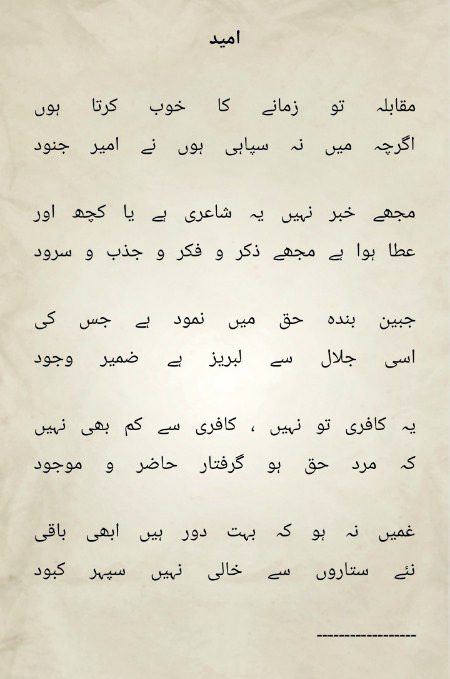 امید
مقابلہ تو زمانے کا خوب کرتا ہوں
اگرچہ میں نہ سپاہی ہوں نے امیر جنود
مجھے خبر نہیں یہ شاعری ہے یا کچھ اور
عطا ہوا ہے مجھے ذکر و فکر و جذب و سرود
جبین بندہ حق میں نمود ہے جس کی
اسی جلال سے لبریز ہے ضمیر وجود
یہ کافری تو نہیں ، کافری سے کم بھی نہیں
کہ مرد حق ہو گرفتار حاضر و موجود
غمیں نہ ہو کہ بہت دور ہیں ابھی باقی
نئے ستاروں سے خالی نہیں سپہر کبود
-------------------